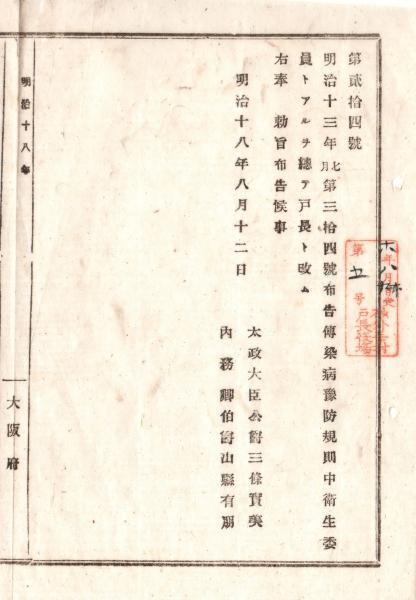 第貳拾四號
明治十三年七月第三拾四號布告傳染病豫防規則中衛生委
員トアルヲ總テ戸長ト改ム
右奉　勅旨布告候事
明治十八年八月十二日
太政大臣公爵三條實美
内務卿伯爵山縣有朋
明治十八年
大阪府
第五号
戸長役場